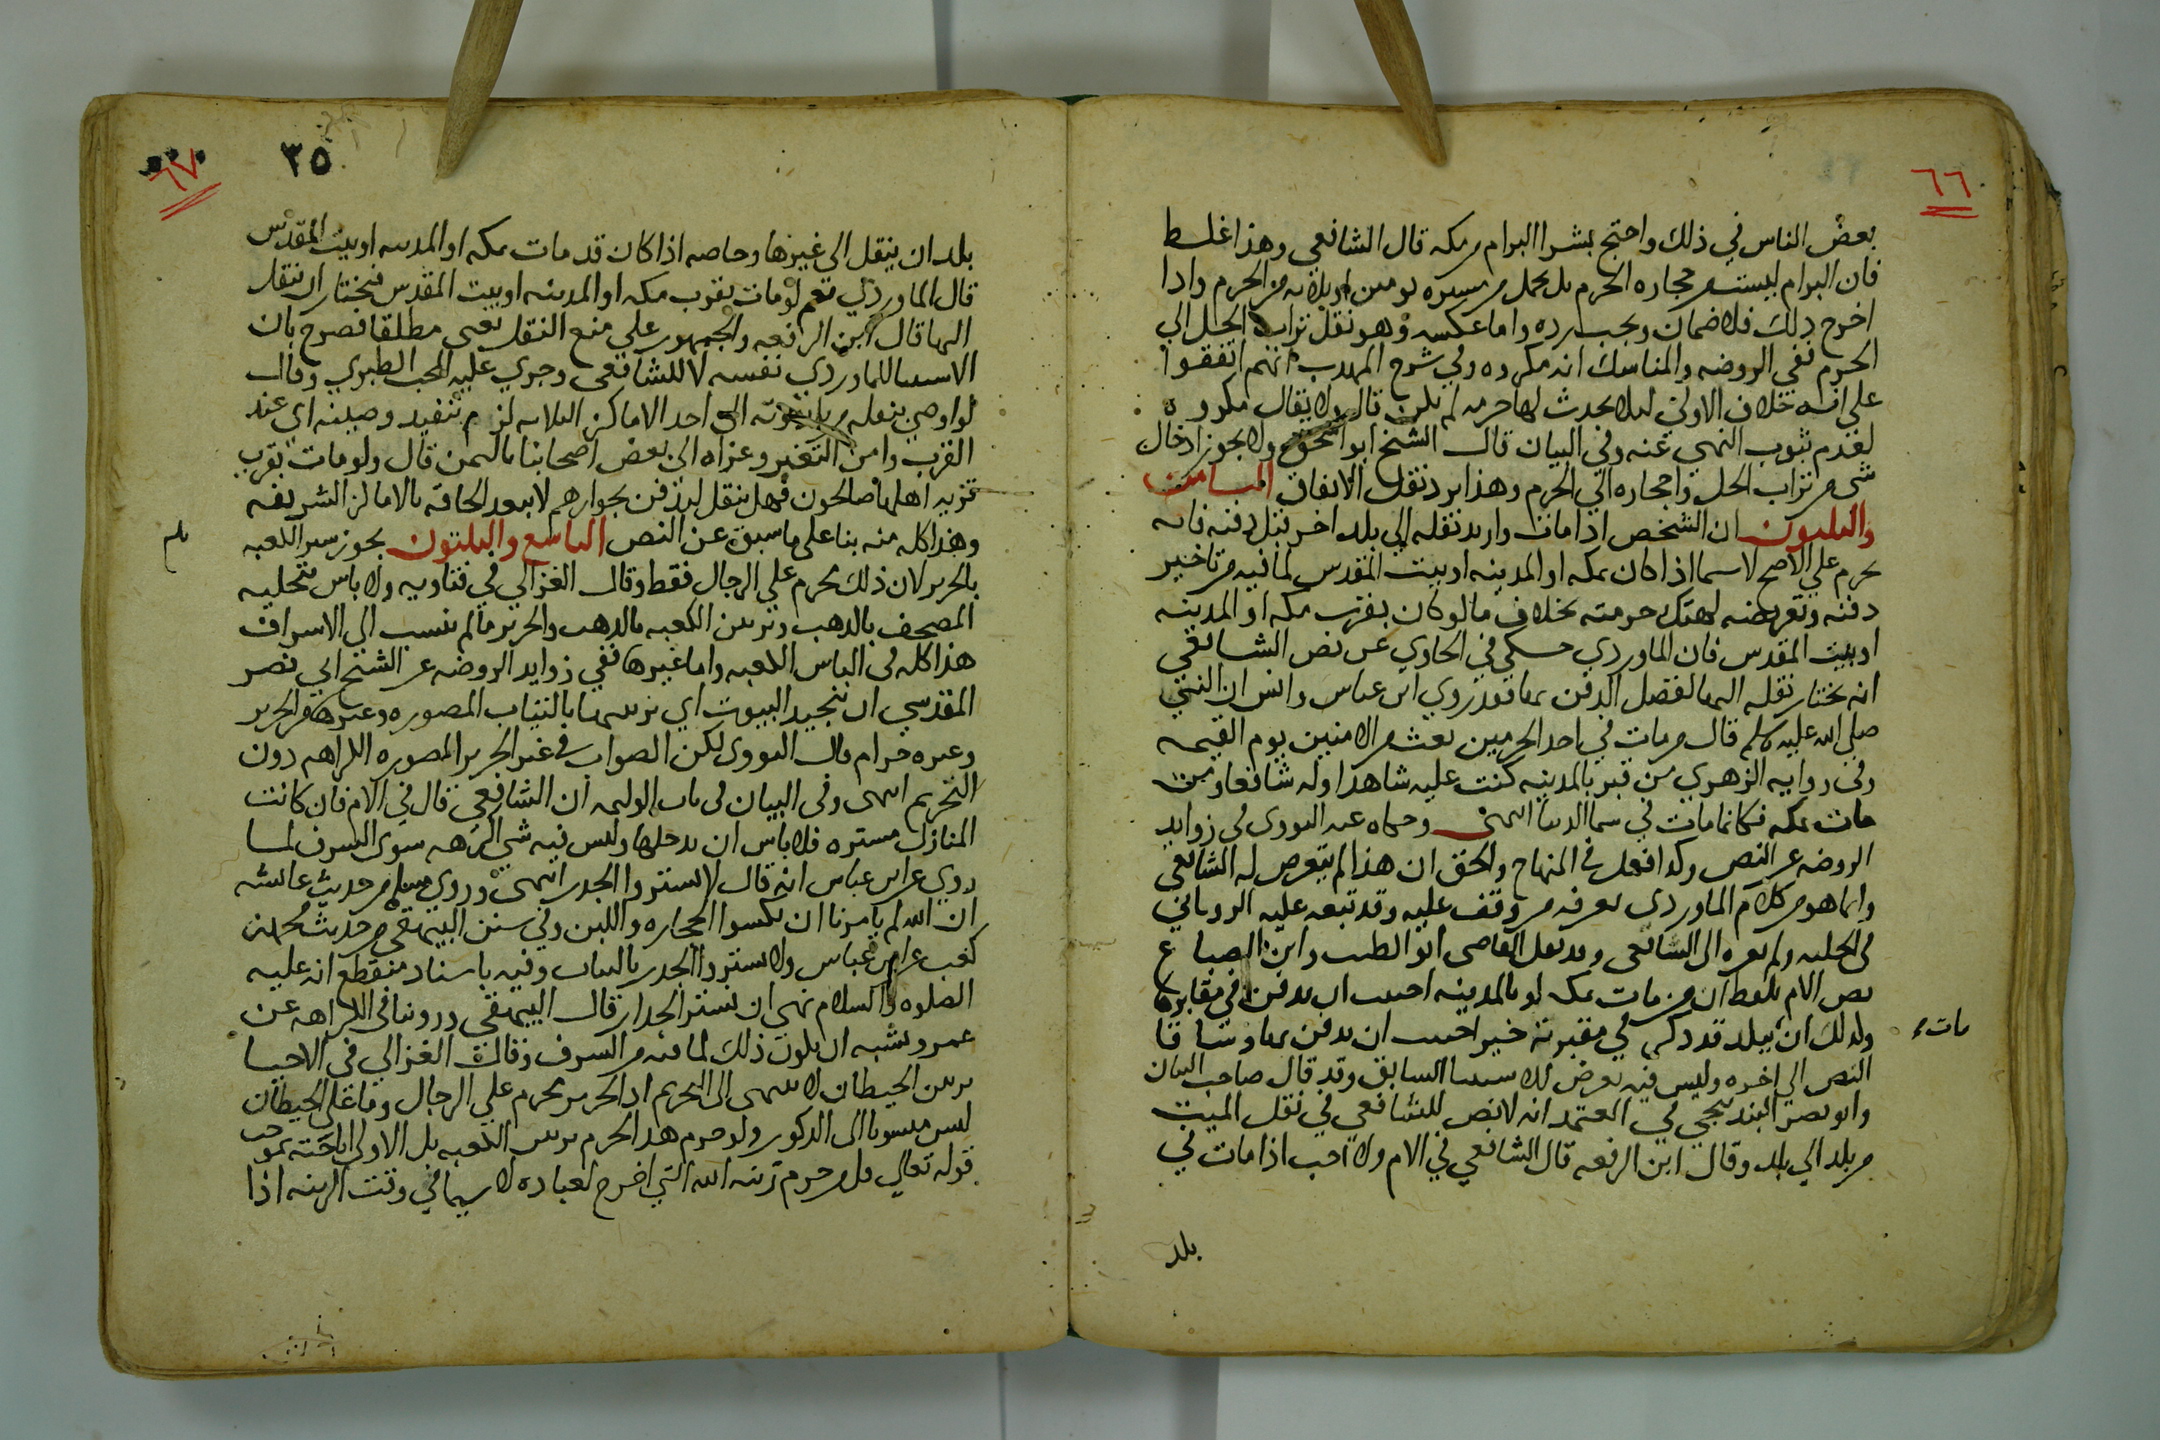 ٦٦
بعض الناس في ذلك واحتج بشرا البرام من مكه قال الشافعي وهذا غلط
فان البرام ليست من حجاره الحرم بل تحمل من مسيره يومين او ثلاثه من الحرم واذا
اخرج ذلك فلا ضمان ويجب رده واما عكسه وهو نقل تراب الحل الي
الحرم ففي الروضه والمناسك انه مكروه وفي شرح المهذب انهم اتفقوا
علي انه خلاف الاولي ليلا يحدث لها حرمه لم تكن قال ولا يقال مكروه
لعدم ثبوت النهي عنه وفي البيان قال الشيخ ابو اسحق ولا يجوز ادخال
شي من تراب الحل واحجاره الي الحرم وهذا يرد نقل الاتفاق الثامن
والثلثون ان الشخص اذا مات واريد نقله الي بلد اخر قبل دفنه فانه
يحرم علي الاصح لا سيما اذا كان بمكه او المدينه او بيت المقدس لما فيه من تاخير
دفنه وتعريضه لهتك حرمته بخلاف ما لو كان بقرب مكه او المدينه
او بيت المقدس فان الماوردي حكي في الحاوي عن نص الشافعي
انه يختار نقله اليها لفضل الدفن بها فقد روي ابن عباس وانس ان النبي
صلي الله عليه وسلم قال من مات في احد الحرمين بعث من الامنين يوم القيمه
وفي روايه الزهري من قبر بالمدينه كنت عليه شاهدا وله شافعا ومن
مات بمكه فكانما مات في سما الدنيا انتهي وحكاه عنه النووي في زوايد
الروضه عن النص وكذا فعل في المنهاج والحق ان هذا لم يتعرض له الشافعي
وانما هو من كلام الماوردي يعرفه من وقف عليه وقد تبعه عليه الروياني
في الحليه ولم يعزه الي الشافعي وقد نقل القاضي ابو الطيب وابن الصباغ
نص الام بلفظ ان من مات بمكه او بالمدينه احببت ان يدفن في مقابرها
وكذلك ان ببلد قد ذكر في مقبرته خير احببت ان يدفن بها وساقا
مات
النص الي اخره وليس فيه تعرض للاستثنا السابق وقد قال صاحب البيان
وابو نصر البندنيجي في المعتمد انه لا نص للشافعي في نقل الميت
من بلد الي بلد وقال ابن الرفعه قال الشافعي في الام ولا احب اذا مات في
بلد
٦٧
٣٥
بلد ان ينقل الي غيرها وخاصه اذا كان قد مات بمكه او المدينه او بيت المقدس
قال الماوردي نعم لو مات بقرب مكه او المدينه او بيت المقدس فنختار ان ينقل
اليها قال ابن الرفعه والجمهور علي منع النقل يعني مطلقا فصرح بان
الاستثنا للماوردي نفسه لا للشافعي وجري عليه المحب الطبري وقال
لو اوصي بنقله من موته الي احد الاماكن الثلاثه لزم تنفيذ وصيته اي عند
القرب وامن التغير وعزاه الي بعض اصحابنا باليمن قال ولو مات بقرب
قريه اهلها صالحون فهل ينقل ليدفن بجوارهم لا يبعد الحاقه بالاماكن الشريفه
وهذا كله منه بنا علي ما سبق عن النص التاسع والثلثون يجوز ستر الكعبه
بالحرير لان ذلك يحرم علي الرجال فقط وقال الغزالي في فتاويه ولا باس بتحليه
المصحف بالذهب وتزيين الكعبه بالذهب والحرير ما لم ينسب الي الاسراف
هذا كله في الباس الكعبه واما غيرها ففي زوايد الروضه عن الشيخ ابي نصر
المقدسي ان تنجيد البيوت اي تزيينها بالثياب المصوره وغيرها من الحرير
وغيره حرام قال النووي لكن الصواب في غير الحرير المصوره الكراهه دون
التحريم انتهي وفي البيان في باب الوليمه ان الشافعي قال في الام فان كانت
المنازل مستره فلا باس ان يدخلها وليس فيه شي اكرهه سوي السرف لما
روي عن ابن عباس انه قال لا تستروا الجدر انتهي وروي مسلم من حديث عائشه
ان الله لم يامرنا ان نكسوا الحجاره واللبن وفي سنن البيهقي من حديث محمد بن
كعب عن ابن عباس ولا تستروا الجدر بالثياب وفيه باسناد منقطع انه عليه
الصلوه والسلام نهي ان تستر الجدار قال البيهقي وروينا في الكراهه عن
عمر ويشبه ان يكون ذلك لما فيه من السرف وقال الغزالي في الاحيا
تزيين الحيطان لا ينتهي الي التحريم اذ الحرير يحرم علي الرجال وما علي الحيطان
ليس منسوبا الي الذكور ولو حرم هذا لحرم تزيين الكعبه بل الاولي اباحته بموجب
قوله تعالي قل من حرم زينه الله التي اخرج لعباده لا سيما في وقت الزينه اذا